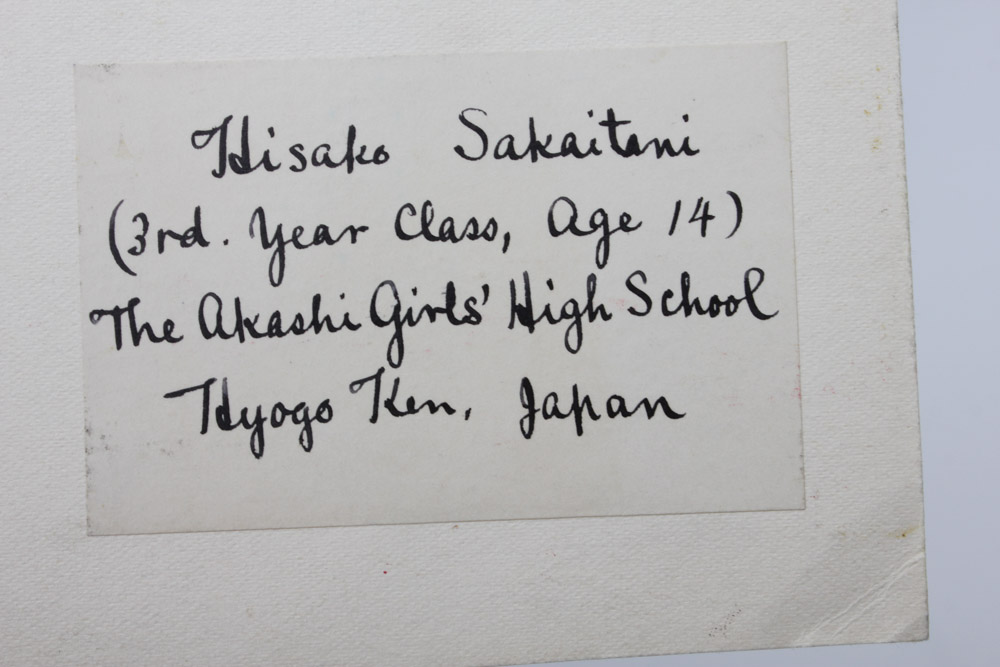 Hisako Sakaitani
(3rd. Year Class, Age 14)
The Akashi Girls' High School
Hyogo Ken, Japan